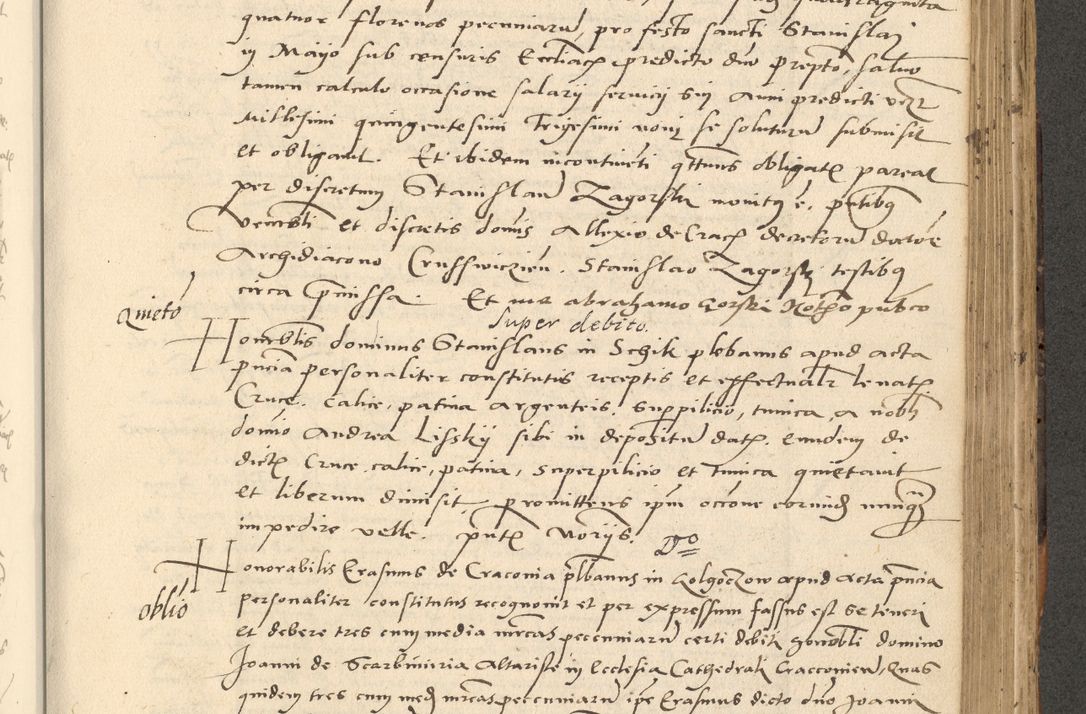 quatuor florenos pecuniarum, pro festo sancti Stanislaj
in Mayo sub censuris Ecclīacz predicto dno preptō, saluo
tamen calculo occasione salarij seruicij sui anni predicti
Millesimi quingentesimi Trigesimi noni se soluturū submisit
et obligauit. Et ibidem incontinenti obligatz pareat
per discretum Stanislaū Zagorski monitq ē, pntibq
Venerabli et discretis domīs Allexio de Cracz decretorū doctore
Archidiacono Crusswiczien. Stanislao Zagorskj testibq
circa Premissa. Et me abrahamo Gorski Notrīo publico
Quietō
Super debito
Honorablis dominus Stanislaus in Schik plebanus apud acta
pncia personaliter constitutis receptis et effectualr leuatz
Cruce, calice, patina argenteis, suppilicio, tunica, a nobli
domīo Andrea Lisskij sibi in depositū datz, eundem de
dictz Cruce calice, patina, superpilicio et tunica quietauit
et liberum dimisit, promittens ipm occōne eorundē nunqz
impedire velle. pntz Noryjs.
Do
oblīo
Honorabilis Erasmus de Craconia plbanus in Golgoczow apud acta pncia
personaliter constitutus recognouit et per expressum fassus est se teneri
et debere tres cum media mrcas pecuniarū certi debiti honorabli domino
Joanni de Scarbimiria Altariste in Ecclesia Cathedrali Cracconien, Quas
quidem tres cum mediā mrcas pecuniarū ipe Erasmus dicto dno Joanni